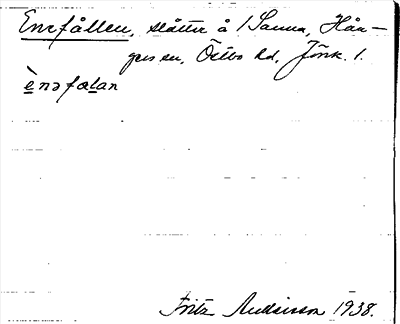 Enefållen, slåtter å 1 Sanna, Hån-
gers sn, Östbo hd, Jönk. l.
ènəfalan
Fritz Andersson 1938.